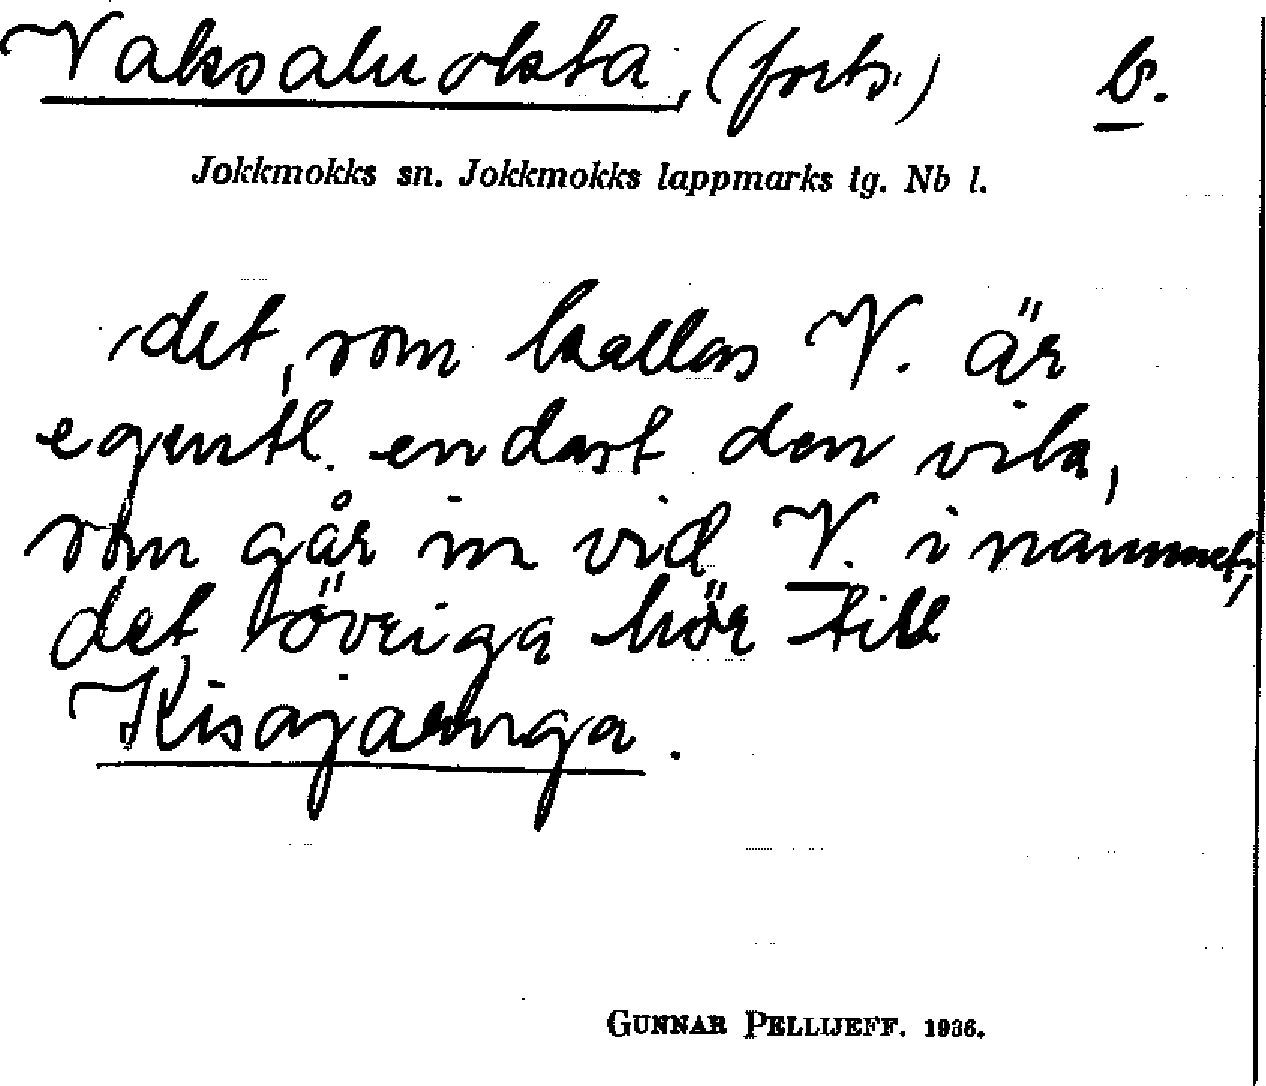 Vaksaluokta, (forts.) b.
Jokkmokks sn. Jokkmokks lappmarks tg. Nb l.
det, som kallas V. är
egentl. endast den vik,
som går in vid V. i namnet,
det övriga hör till
Kisajaurga.
GUNNAR PELLIJEFF. 1936.